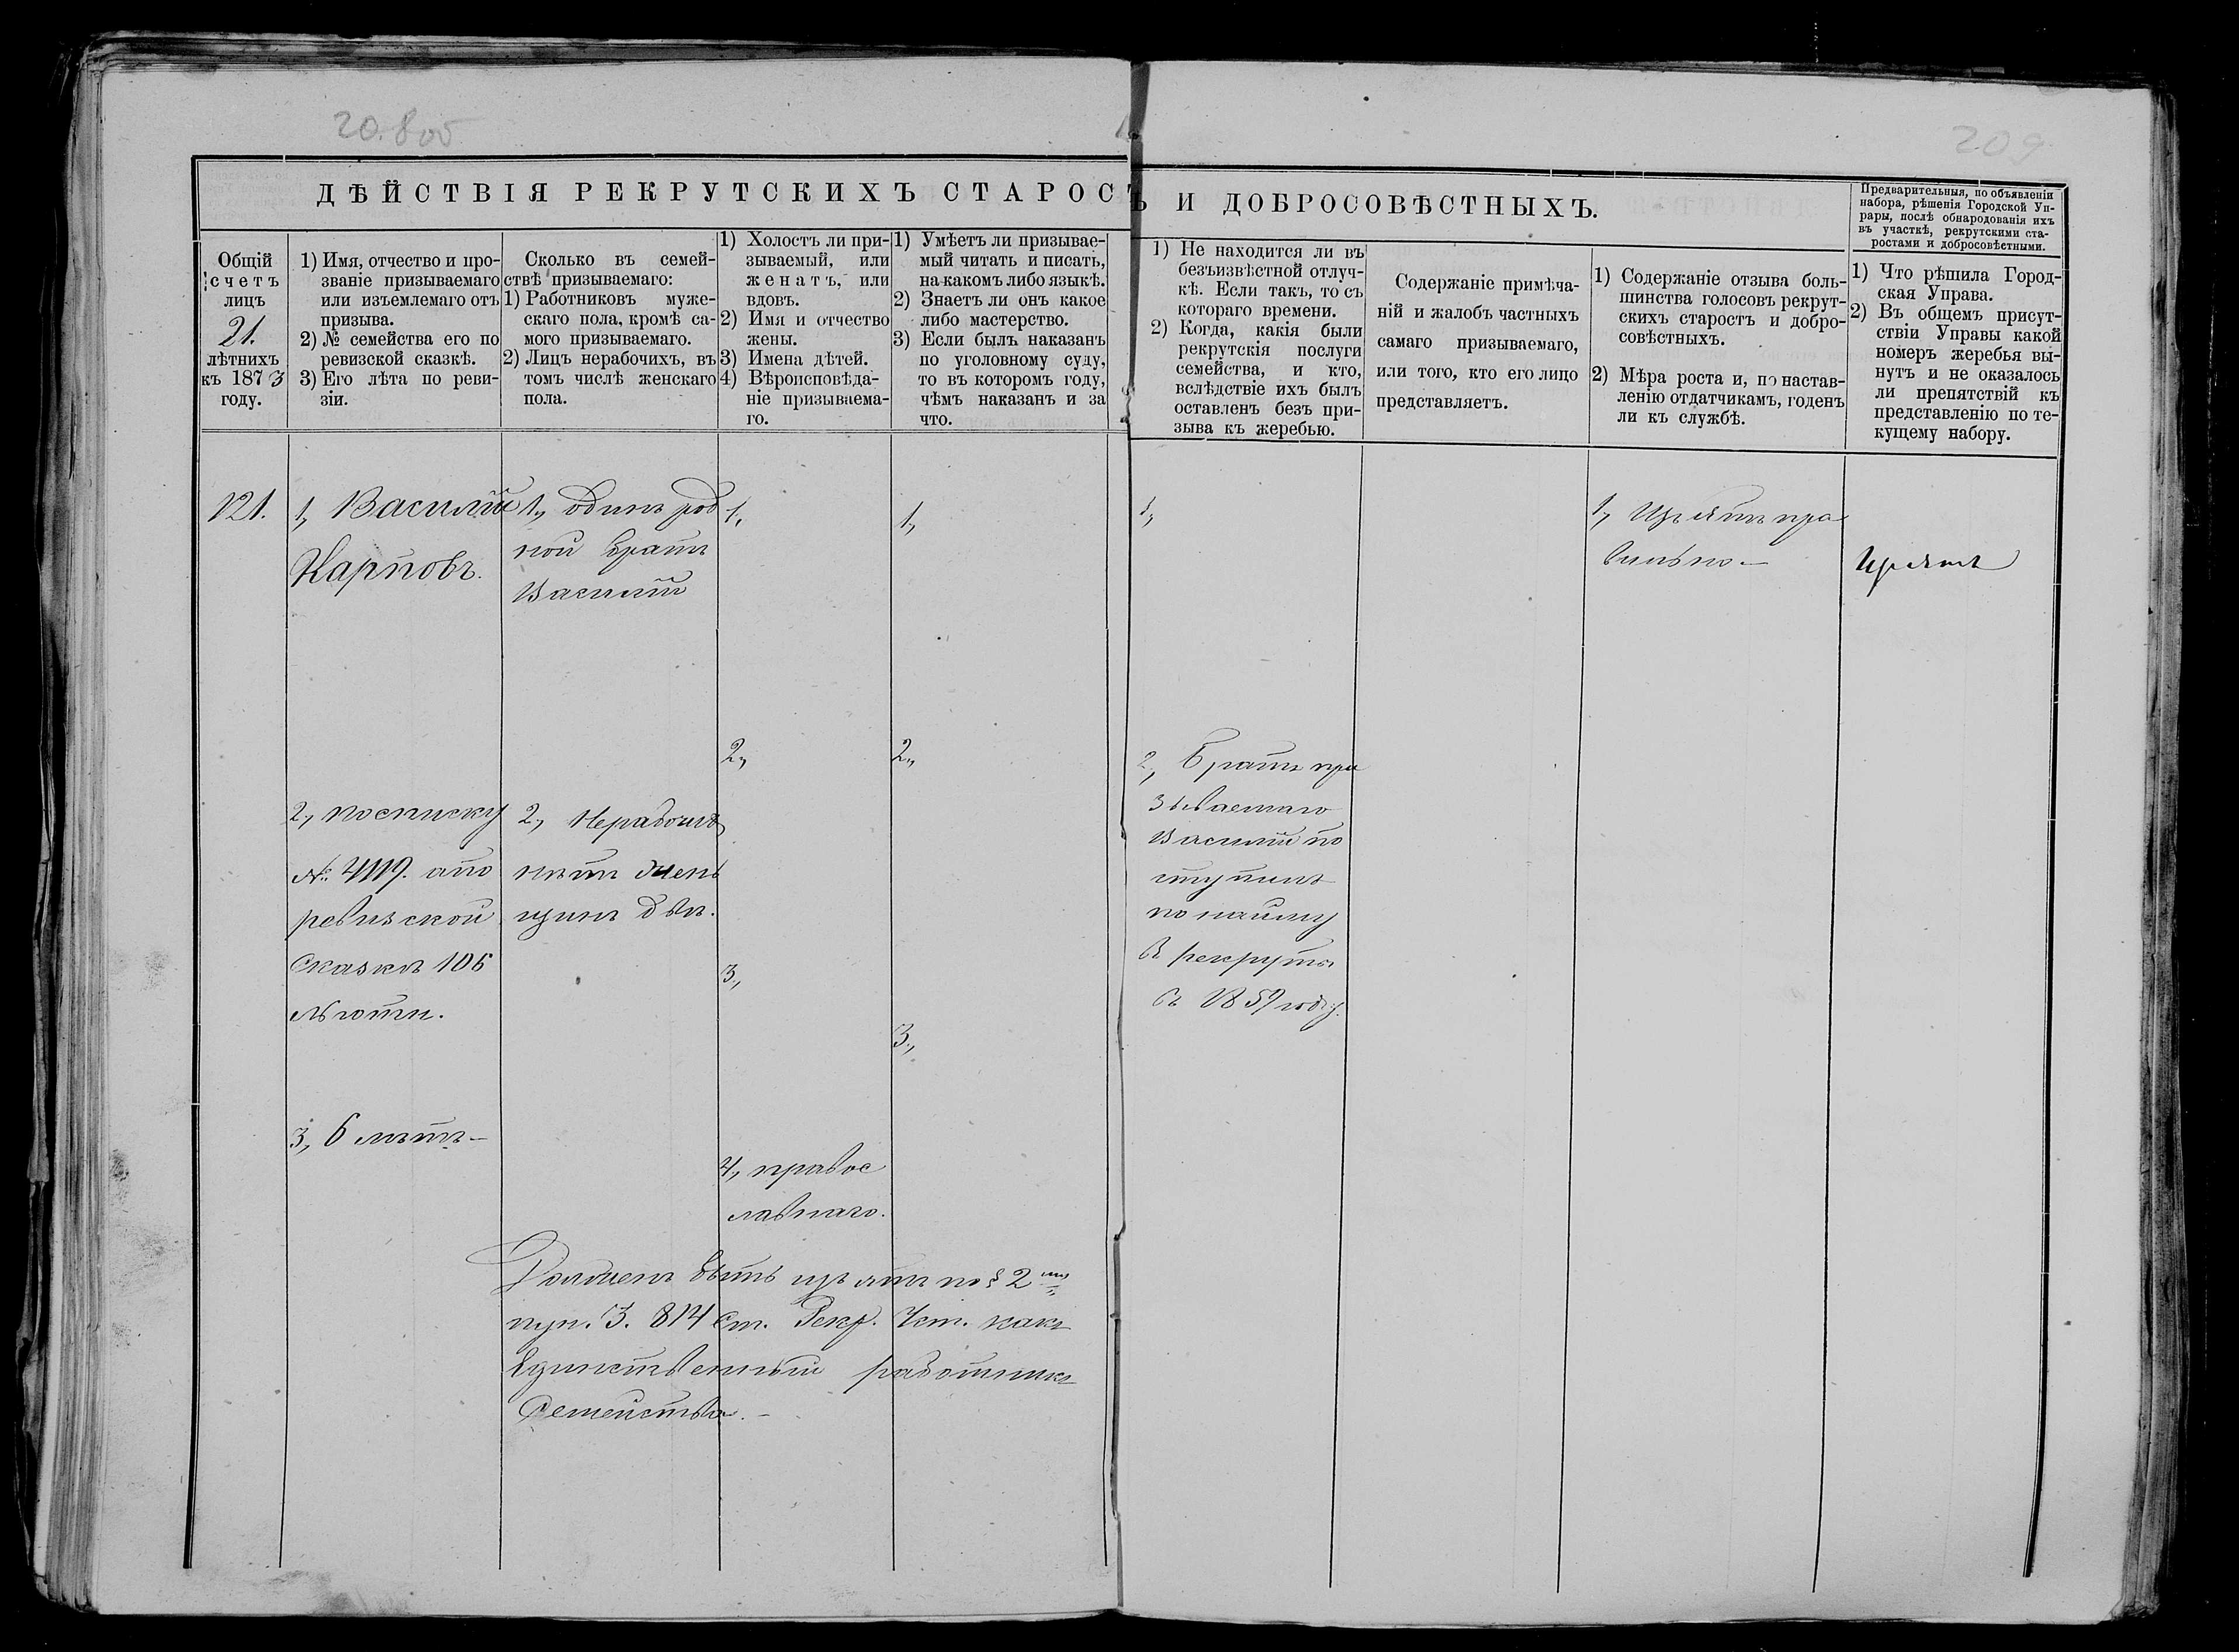 20.8об
209
ДѢЙСТВІЯ РЕКРУТСКИХЪ СТАРОСТЪ И ДОБРОСОВѢСТНЫХЪ.
Предварительныя, по объявленіи
набора, рѣшенія Городской Уп-
рары, послѣ обнародованія ихъ
въ участкѣ, рекрутскими ста-
ростами и добросовѣстными.
Общій
счетъ
лицъ
21.
лѣтнихъ
къ 1873
году.
1) Имя, отчество и про-
званіе призываемаго
или изъемлемаго отъ
призыва.
2) № семейства его по
ревизской сказкѣ.
3) Его лѣта по реви-
зіи.
Сколько въ семей-
ствѣ призываемаго:
1) Работниковъ муже-
скаго пола, кромѣ са-
мого призываемаго.
2) Лицъ нерабочихъ, въ
томъ числѣ женскаго
пола.
1) Холостъ ли при-
зываемый, или
женатъ, или
вдовъ.
2) Имя и отчество
жены.
3) Имена дѣтей.
4) Вѣроисповѣда-
ніе призываема-
го.
1) Умѣетъ ли призывае-
мый читать и писать,
на какомъ либо языкѣ.
2) Знаетъ ли онъ какое
либо мастерство.
3) Если былъ наказанъ
по уголовному суду,
то въ которомъ году,
чѣмъ наказанъ и за
что.
1) Не находится ли въ
безъизвѣстной отлуч-
кѣ. Если такъ, то съ
котораго времени.
2) Когда, какія были
рекрутскія послуги
семейства, и кто,
вслѣдствіе ихъ былъ
оставленъ безъ при-
зыва къ жеребью.
Содержаніе примѣча-
ній и жалобъ частныхъ
самаго призываемаго,
или того, кто его лицо
представляетъ.
1) Содержаніе отзыва боль-
шинства голосовъ рекрут-
скихъ старостъ и добро-
совѣстныхъ.
2) Мѣра роста и, по настав-
ленію отдатчикамъ, годенъ
ли къ службѣ.
1) Что рѣшила Город-
ская Управа.
2) Въ общемъ присут-
ствіи Управы какой
номеръ жеребья вы-
нутъ и не оказалось
ли препятствій къ
представленію по те-
кущему набору.
121.
1, Василій
Карповъ.
2, по списку
№ 4119. а по
ревизской
сказкѣ 106
льготн.
3, 6 лѣтъ-
1, одинъ род
ной братъ
Василій
2, Нерабочихъ
нѣтъ жен
щинъ двѣ.
1,
2,
3,
4, правос
лавнаго.
1,
2,
3,
Долженъ быть изъятъ по § 2му
пун. 3. 814 ст. Рекр. Уст. какъ
единственный работникъ
семейства. -
1,
2, Братъ при
зываемаго
Василій по
ступилъ
по найму
въ рекруты
въ 1859 году.
1, Изъятъ пра
вильно -
Изъятъ